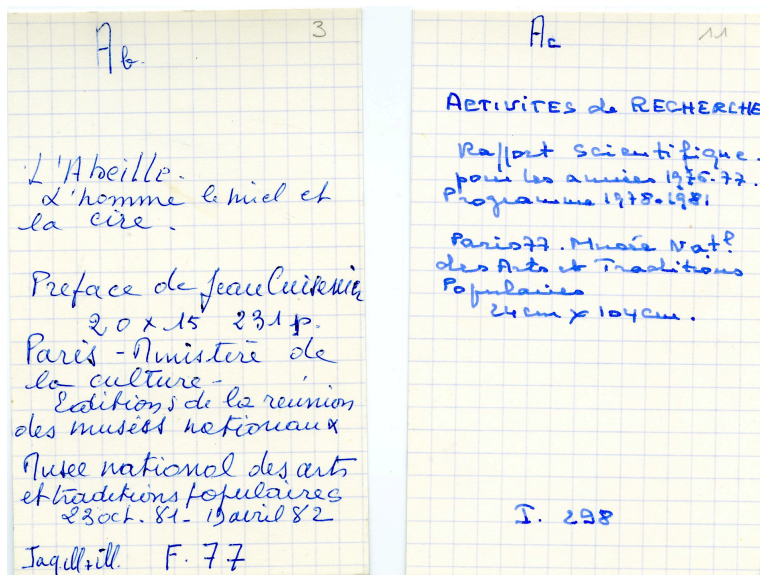 Ab.
3
L'Abeille.
L'homme le miel et
la cire.
Preface de Jean Cuisenier
20 x 15 231 p.
Paris - Ministère de
la culture -
Editions de la reunion
des musées nationaux
Musee national des arts
et traditions populaires
23 oct. 81 - 19 avril 82
F. 77
Ac
11
ACTIVITES de RECHERCHE
Rapport Scientifique.
pour les années 1976-77.
Programme 1978-1981
Paris 77. Musée Natl
des Arts et Traditions
Populaires
24cm x 104cm.
I. 298